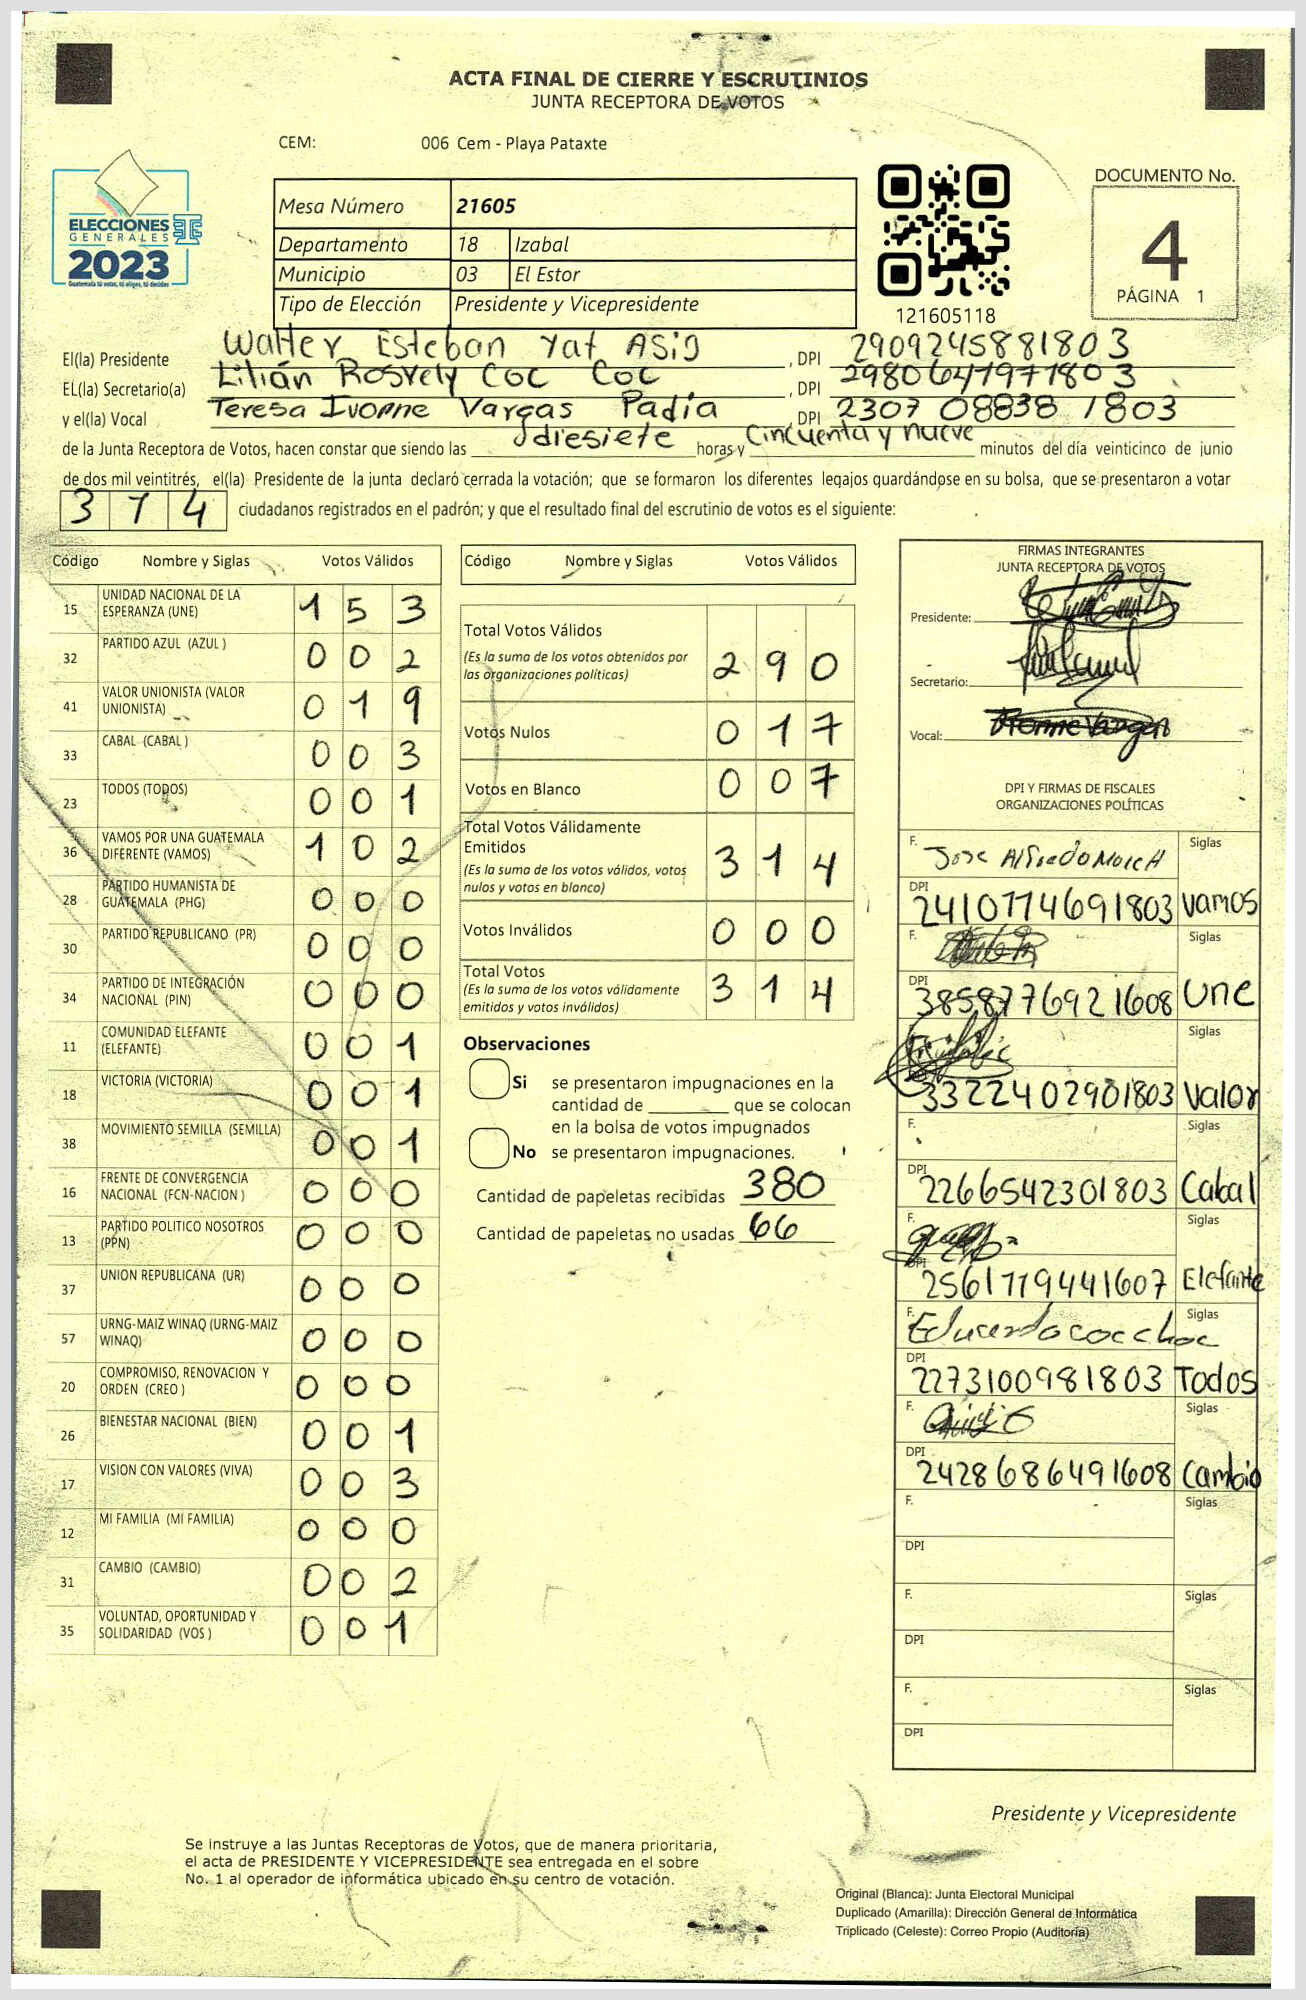 ACTA FINAL DE CIERRE Y ESCRUTINIOS
JUNTA RECEPTORA DE VOTOS
CEM: 006 Cem - Playa Pataxte
ELECCIONES
GENERALES
2023
Guatemala tú votas, tú eliges, tú decides
Mesa Número 21605
Departamento 18 Izabal
Municipio 03 El Estor
Tipo de Elección Presidente y Vicepresidente
121605118
DOCUMENTO No.
4
PÁGINA 1
El(la) Presidente Walter Esteban Yat ASig , DPI 2909245881803
EL(la) Secretario(a) Lilián Rosvely Coc Coc , DPI 2980647971803
y el(la) Vocal Teresa Ivonne Vargas Padía , DPI 2307 08838 1803
de la Junta Receptora de Votos, hacen constar que siendo las diesiete horas y Cincuenta y nueve minutos del día veinticinco de junio
de dos mil veintitrés, el(la) Presidente de la junta declaró cerrada la votación; que se formaron los diferentes legajos guardándose en su bolsa, que se presentaron a votar
374 ciudadanos registrados en el padrón; y que el resultado final del escrutinio de votos es el siguiente:
Código Nombre y Siglas Votos Válidos
15 UNIDAD NACIONAL DE LA ESPERANZA (UNE) 1 5 3
32 PARTIDO AZUL (AZUL ) 0 0 2
41 VALOR UNIONISTA (VALOR UNIONISTA) 0 1 9
33 CABAL (CABAL ) 0 0 3
23 TODOS (TODOS) 0 0 1
36 VAMOS POR UNA GUATEMALA DIFERENTE (VAMOS) 1 0 2
28 PARTIDO HUMANISTA DE GUATEMALA (PHG) 0 0 0
30 PARTIDO REPUBLICANO (PR) 0 0 0
34 PARTIDO DE INTEGRACIÓN NACIONAL (PIN) 0 0 0
11 COMUNIDAD ELEFANTE (ELEFANTE) 0 0 1
18 VICTORIA (VICTORIA) 0 0 1
38 MOVIMIENTO SEMILLA (SEMILLA) 0 0 1
16 FRENTE DE CONVERGENCIA NACIONAL (FCN-NACION ) 0 0 0
13 PARTIDO POLITICO NOSOTROS (PPN) 0 0 0
37 UNION REPUBLICANA (UR) 0 0 0
57 URNG-MAIZ WINAQ (URNG-MAIZ WINAQ) 0 0 0
20 COMPROMISO, RENOVACION Y ORDEN (CREO ) 0 0 0
26 BIENESTAR NACIONAL (BIEN) 0 0 1
17 VISION CON VALORES (VIVA) 0 0 3
12 MI FAMILIA (MI FAMILIA) 0 0 0
31 CAMBIO (CAMBIO) 0 0 2
35 VOLUNTAD, OPORTUNIDAD Y SOLIDARIDAD (VOS ) 0 0 1
Código Nombre y Siglas Votos Válidos
Total Votos Válidos
(Es la suma de los votos obtenidos por
las organizaciones políticas) 2 9 0
Votos Nulos 0 1 7
Votos en Blanco 0 0 7
Total Votos Válidamente
Emitidos
(Es la suma de los votos válidos, votos
nulos y votos en blanco) 3 1 4
Votos Inválidos 0 0 0
Total Votos
(Es la suma de los votos válidamente
emitidos y votos inválidos) 3 1 4
Observaciones
Si se presentaron impugnaciones en la
cantidad de ________ que se colocan
en la bolsa de votos impugnados
No se presentaron impugnaciones.
Cantidad de papeletas recibidas 380
Cantidad de papeletas no usadas 66
FIRMAS INTEGRANTES
JUNTA RECEPTORA DE VOTOS
Presidente:
Secretario:
Vocal: Ivonne Vargas
DPI Y FIRMAS DE FISCALES
ORGANIZACIONES POLÍTICAS
F. Jose Alfredo Siglas
DPI 2410774691803 Vamos
F. Siglas
DPI 3858776921608 Une
F. Siglas
33222402901803 Valor
F. Siglas
DPI 2266542301803 Cabal
F. Siglas
DPI 2561779441607 Elefante
F. Eduardo coc choc Siglas
DPI 2273100981803 Todos
F. Siglas
DPI 2428686491608 Cambio
F. Siglas
DPI
F. Siglas
DPI
F. Siglas
DPI
Presidente y Vicepresidente
Se instruye a las Juntas Receptoras de Votos, que de manera prioritaria,
el acta de PRESIDENTE Y VICEPRESIDENTE sea entregada en el sobre
No. 1 al operador de informática ubicado en su centro de votación.
Original (Blanca): Junta Electoral Municipal
Duplicado (Amarilla): Dirección General de Informática
Triplicado (Celeste): Correo Propio (Auditoría)